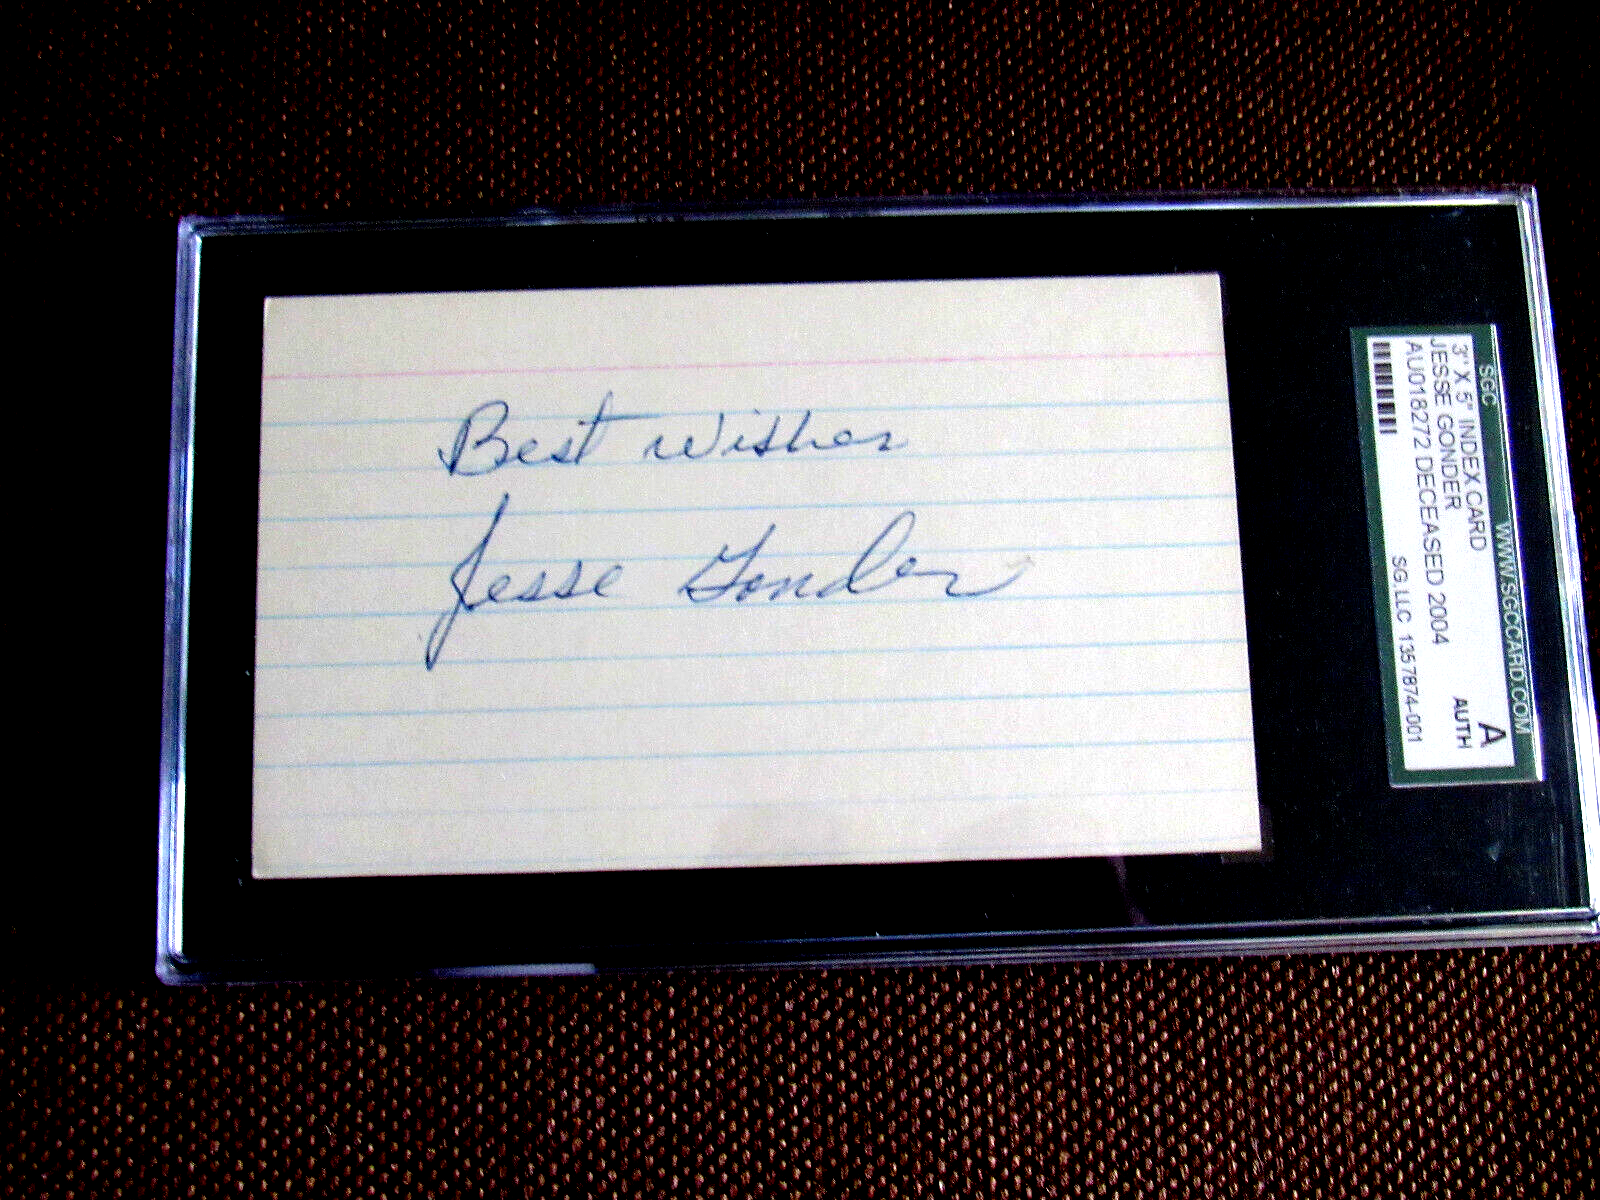 Best wishes
Jesse Gonder
SGC WWW.SGCCARD.COM
3" X 5" INDEX CARD A
JESSE GONDER AUTH
AU018272 DECEASED 2004
SG LLC 1357874-001